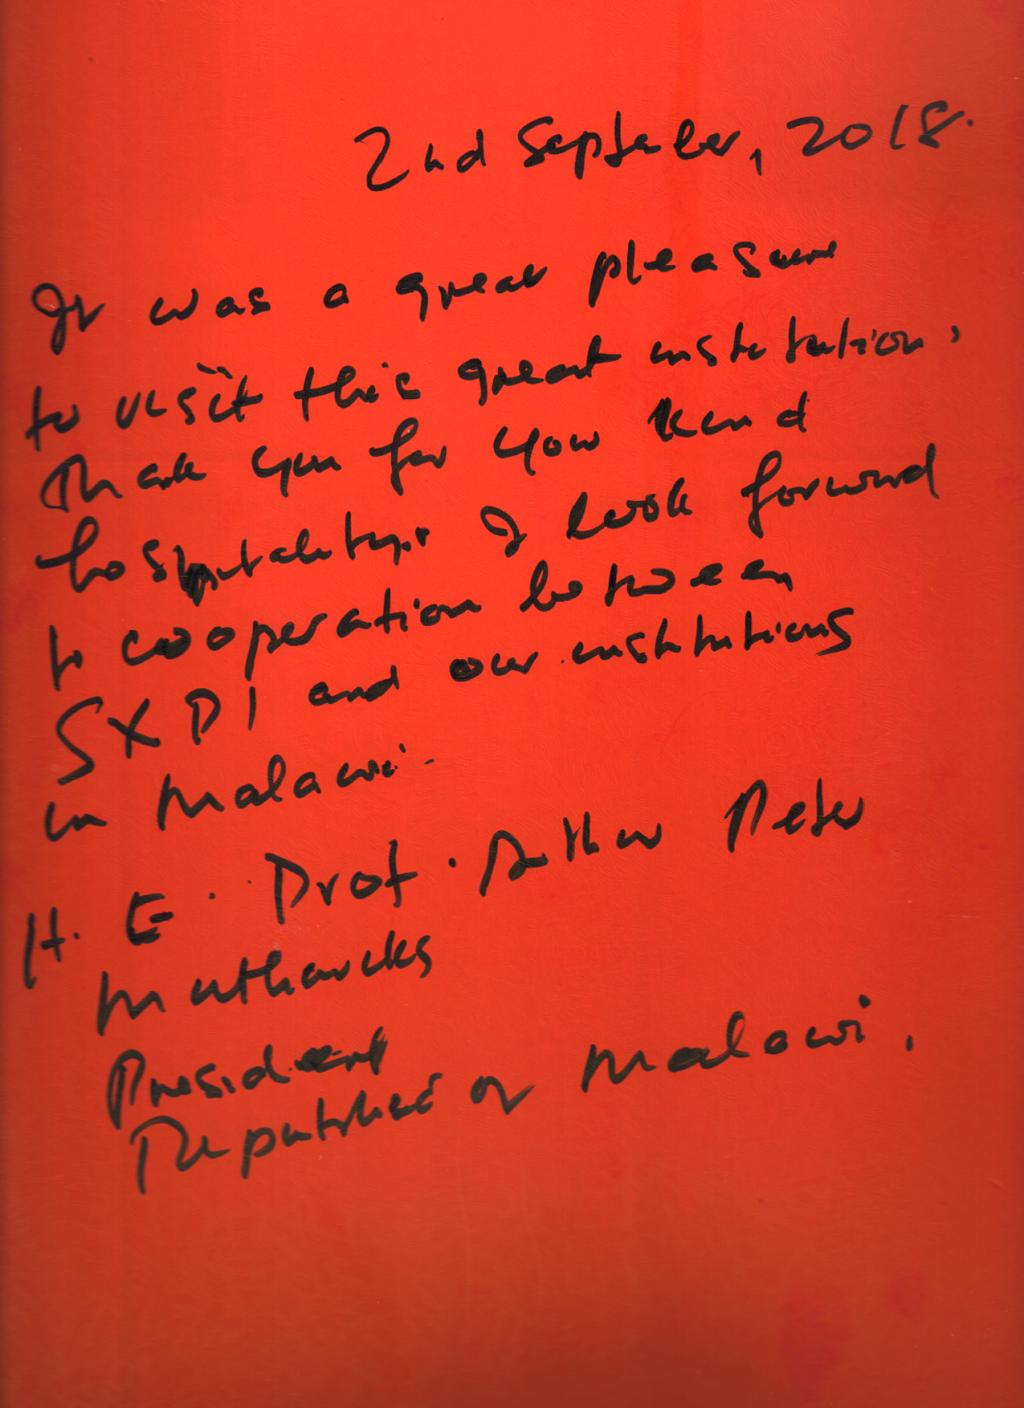 2nd September, 2018.
It was a great pleasure
to visit this great institution.
Thank you for your kind
hospitality. I look forward
to cooperation between
SXDI and our institutions
in Malawi.
H. E. Prof. Arthur Peter
Mutharika
President
Republic of Malawi.